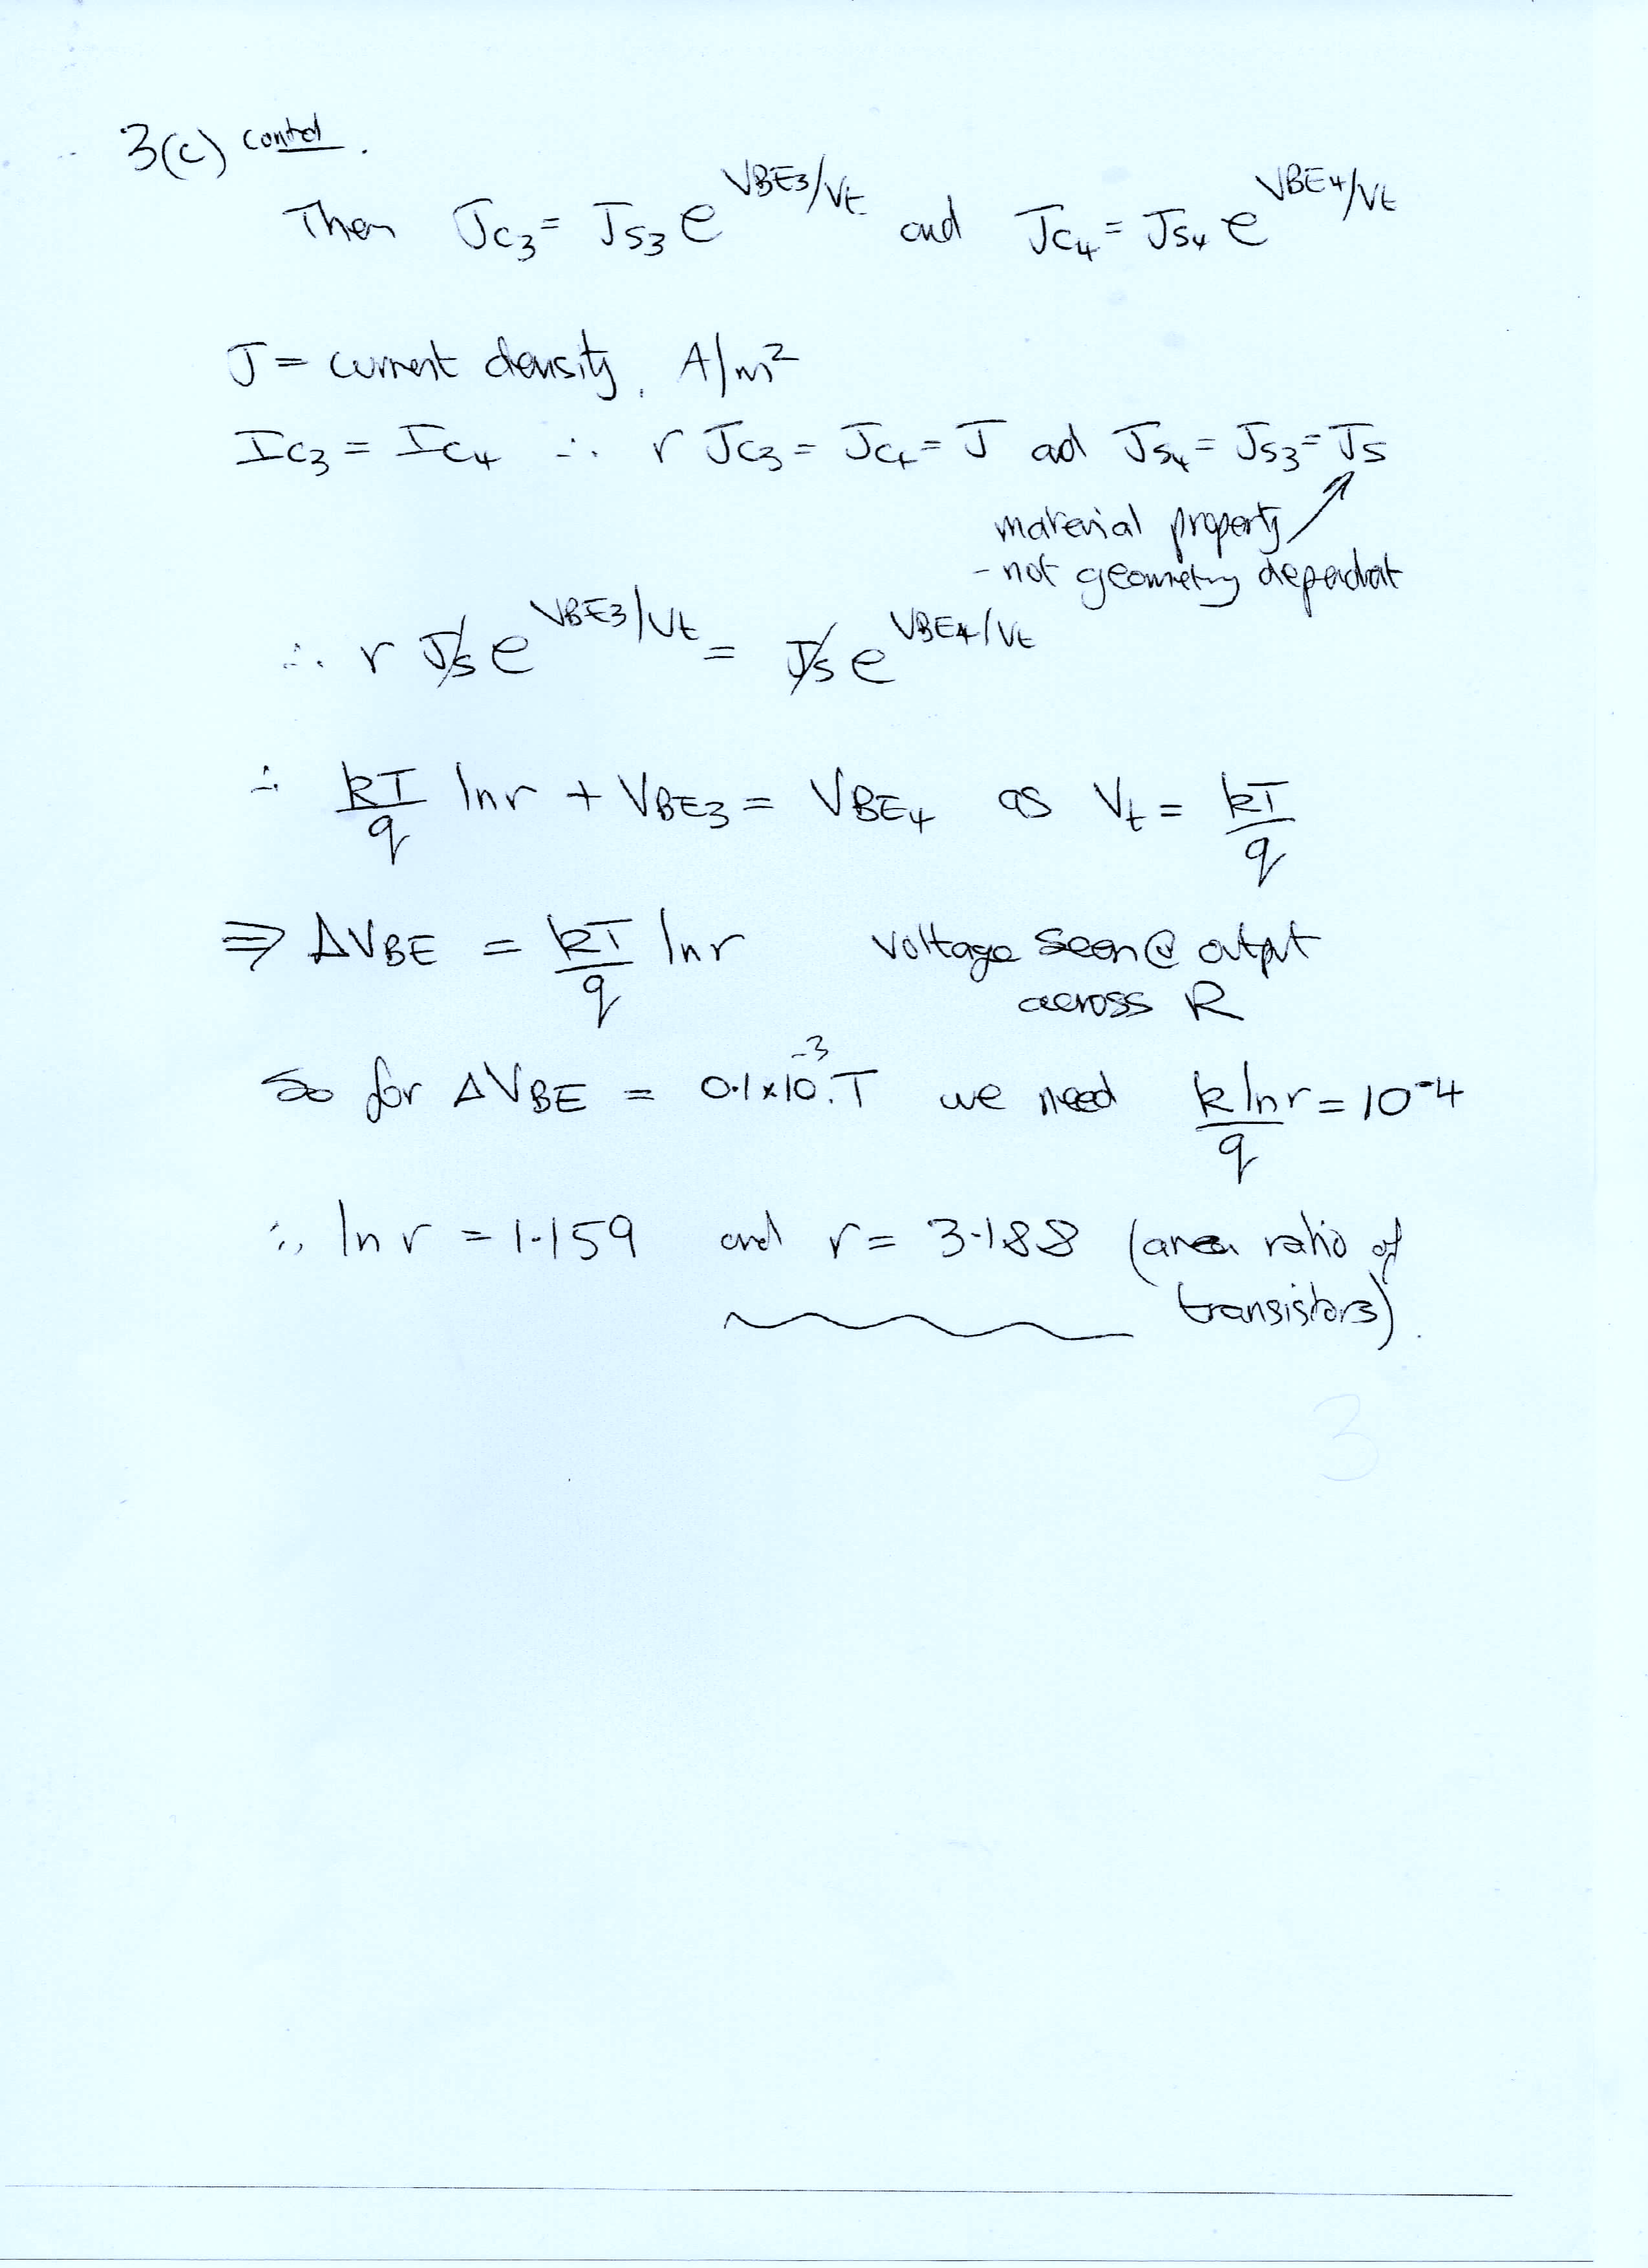 3(c) contd.
Then Jc3 = Js3 e^VBE3/Vt and Jc4 = Js4 e^VBE4/Vt
J = current density, A/m²
Ic3 = Ic4 ∴ r Jc3 = Jc4 = J ad Js4 = Js3 = Js
material property
- not geometry dependent
∴ r Js e^VBE3/Vt = Js e^VBE4/Vt
∴ kT/q ln r + VBE3 = VBE4 as Vt = kT/q
⇒ ΔVBE = kT/q ln r voltage seen @ output
across R
So for ΔVBE = 0.1x10^-3.T we need k ln r/q = 10^-4
∴ ln r = 1.159 and r = 3.188 (area ratio of
transistors).
3